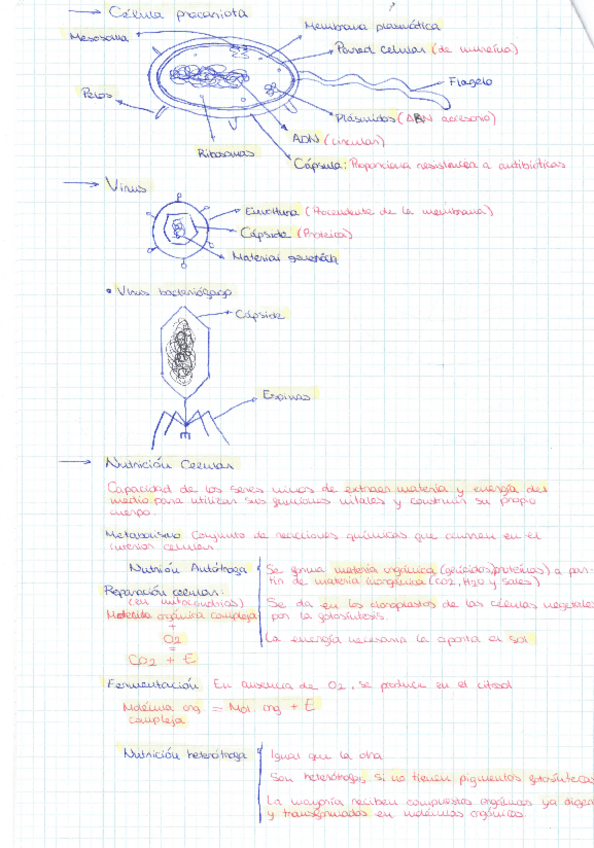 → Célula procariota
Membrana plasmática
Mesosoma
Pared celular (de mureína)
Flagelo
Pelos
Plásmidos (ADN accesorio)
ADN (circular)
Ribosomas
Cápsula: Proporciona resistencia a antibióticos
→ Virus
Envoltura (Procedente de la membrana)
Cápside (Proteica)
Material genético
• Virus bacteriófago
Cápside
Espinas
→ Nutrición Celular
Capacidad de los seres vivos de extraer materia y energía del
medio para utilizar sus funciones vitales y construir su propio
cuerpo.
Metabolismo Conjunto de reacciones químicas que ocurren en el
interior celular.
Nutrión Autótroga
Se forma materia orgánica (glúcidos/proteínas) a par-
tir de materia inorgánica (CO2, H2O y sales)
Se da en los cloroplastos de las células vegetales
por la fotosíntesis.
La energía necesaria la aporta el sol
Respiración celular:
(en mitocondrias)
Molécula orgánica compleja
+
O2
=
CO2 + E
Fermentación En ausencia de O2, se produce en el citosol
Molécula org = Mol. org + E
compleja
Nutrición heterótroga
Igual que la otra
Son heterótrogos, si no tienen pigmentos fotosintéticos
La mayoría reciben compuestos orgánicos ya diger
y transformados en moléculas orgánicas.